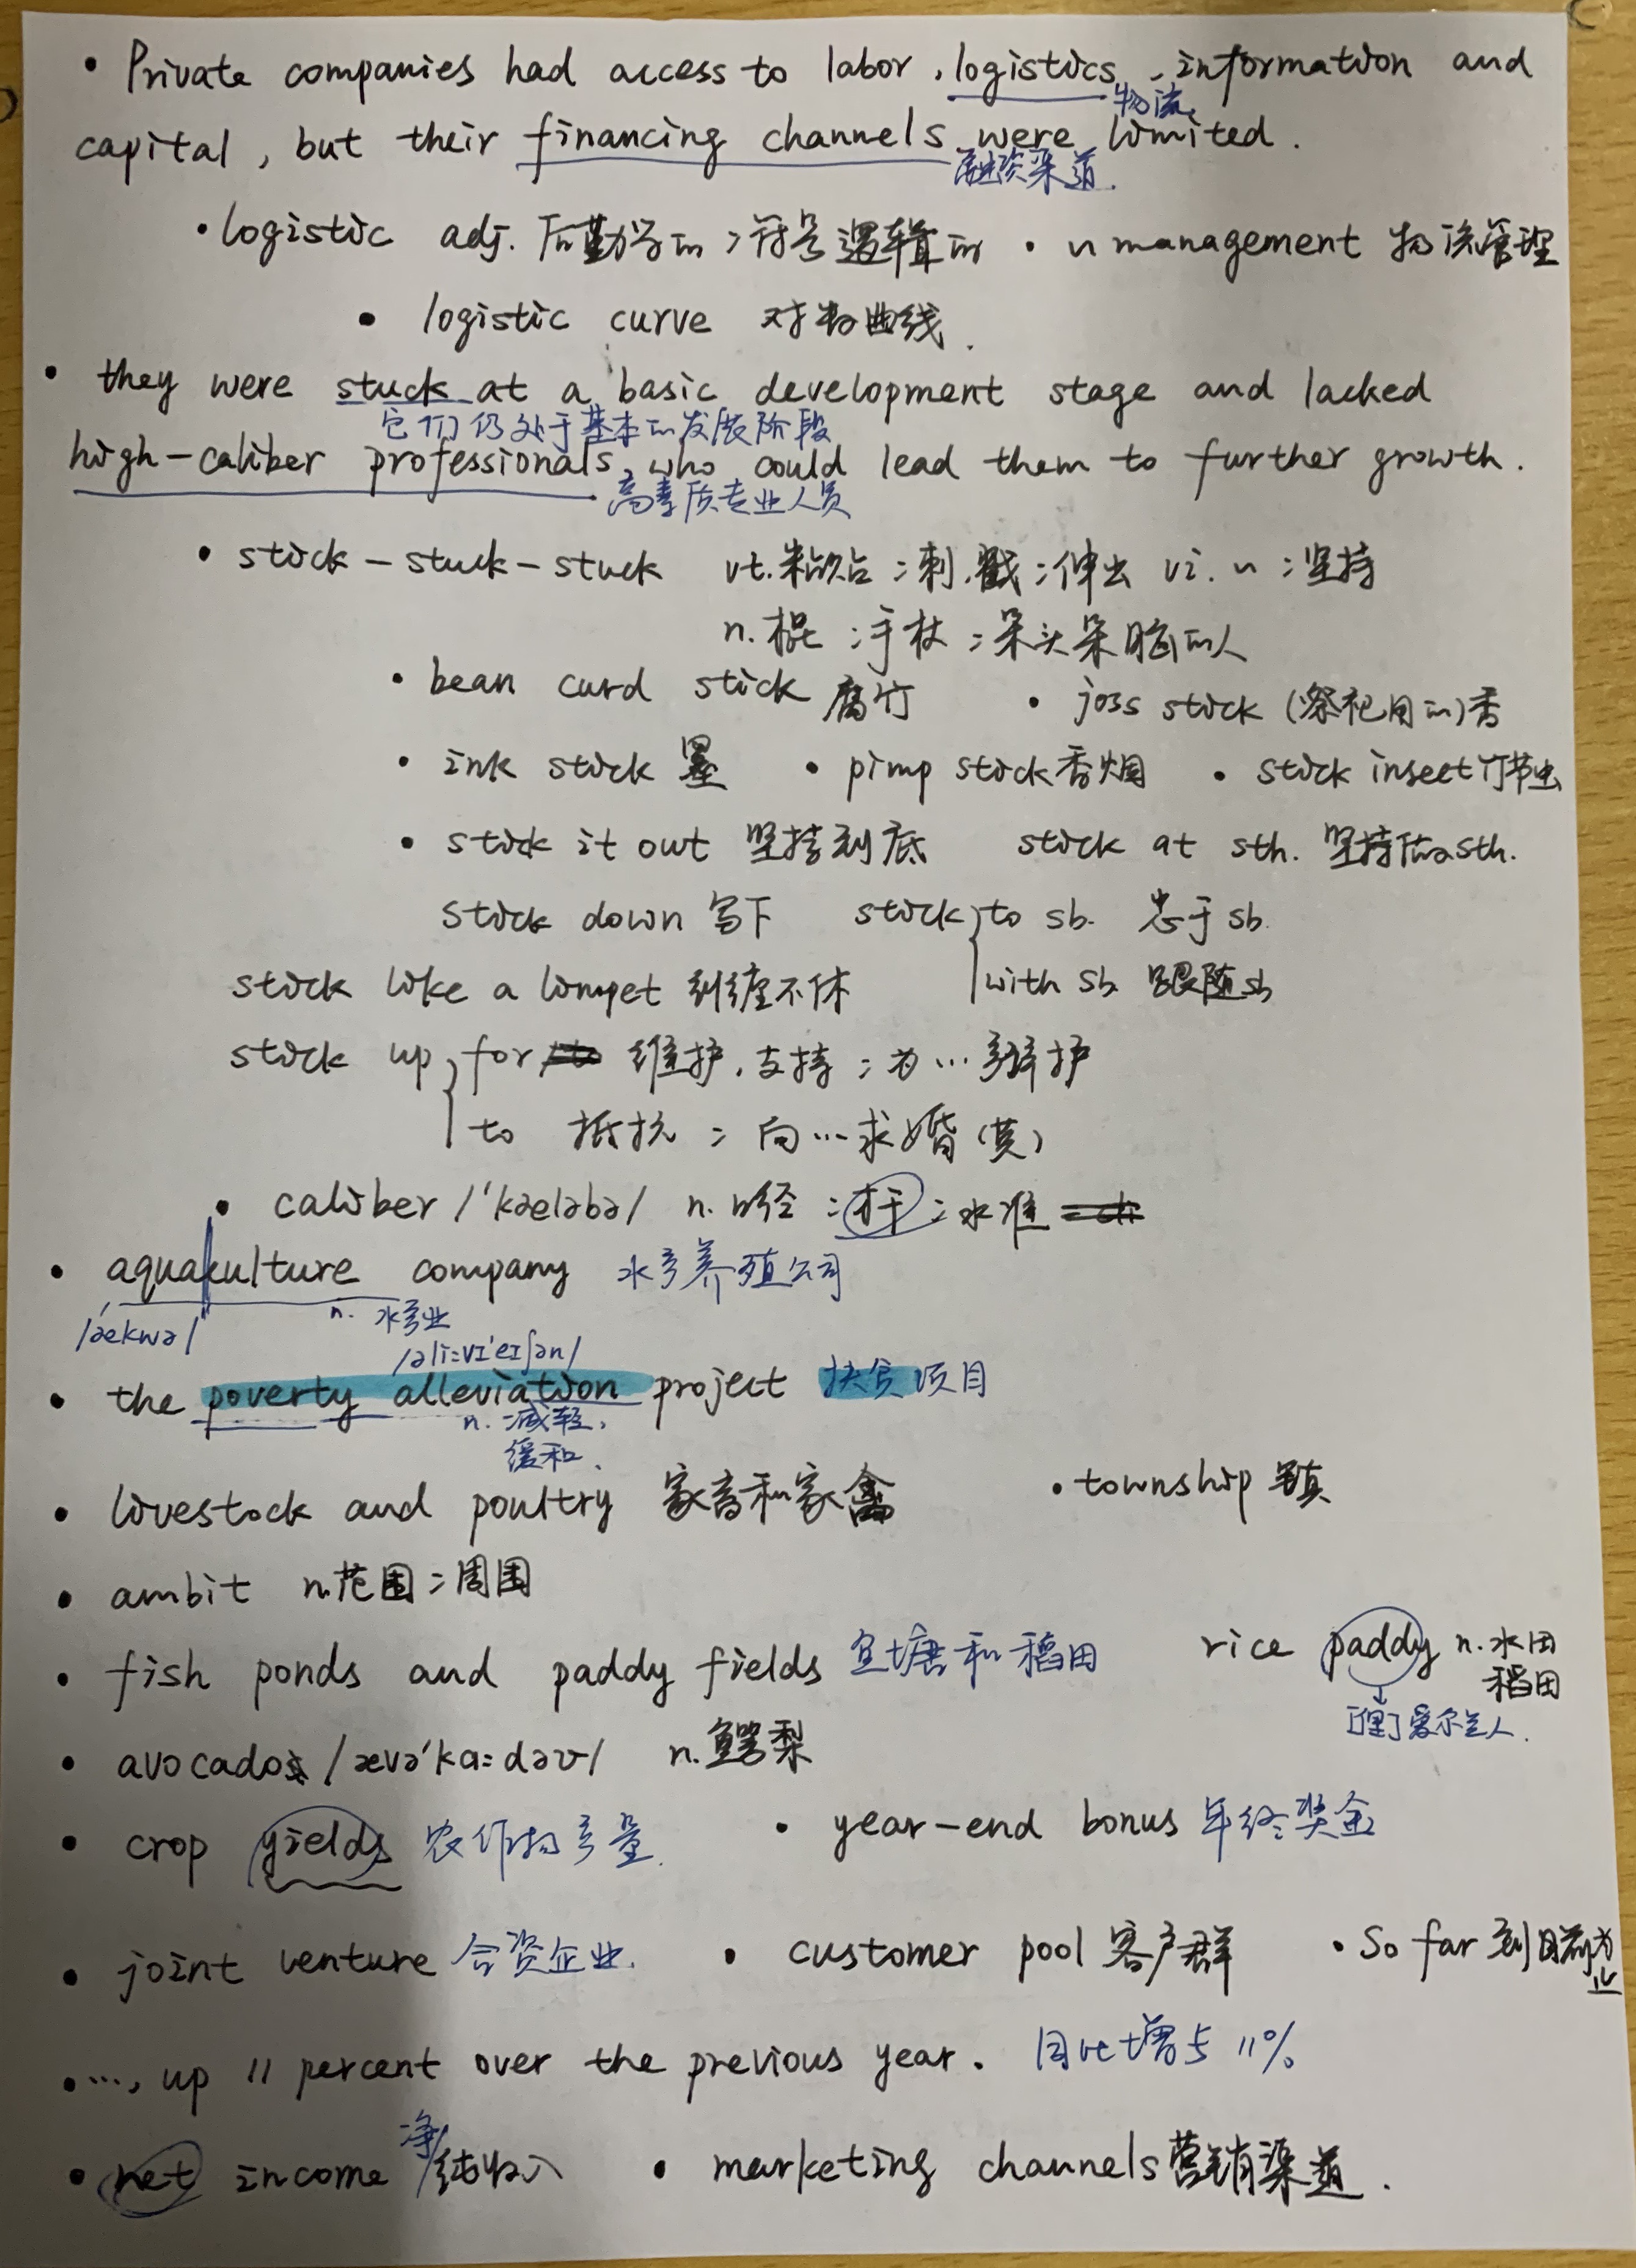 • Private companies had access to labor, logistics, information and
物流
capital, but their financing channels were limited.
融资渠道.
• logistic adj. 后勤学的;符号逻辑的 • ~ management 物流管理
• logistic curve 对数曲线.
• they were stuck at a basic development stage and lacked
它们仍处于基本的发展阶段
high-caliber professionals, who could lead them to further growth.
高素质专业人员
• stick - stuck - stuck vt. 粘贴;刺,戳;伸出 vi. ~;坚持
n. 棍;手杖;呆头呆脑的人
• bean curd stick 腐竹 • joss stick (祭祀用的)香
• ink stick 墨 • pimp stick 香烟 • stick insect 竹节虫
• stick it out 坚持到底 stick at sth. 坚持做sth.
stick down 写下 stick to sb. 忠于sb.
stick like a limpet 纠缠不休 with sb 跟随sb
stick up for 维护,支持;为…辩护
to 抵抗;向…求婚(英)
• caliber /'kæləbə/ n. 口径;才干;水准
• aquaculture company 水产养殖公司
/ækwə/ n. 水产业
/əli:vɪ'eɪʃən/
• the poverty alleviation project 扶贫项目
n. 减轻,
缓和.
• livestock and poultry 家畜和家禽 • township 镇
• ambit n. 范围;周围
• fish ponds and paddy fields 鱼塘和稻田 rice paddy n. 水田
稻田
[俚]爱尔兰人.
• avocado /ævə'kɑ:dəʊ/ n. 鳄梨
• crop yields 农作物产量. • year-end bonus 年终奖金
• joint venture 合资企业. • customer pool 客户群 • So far 到目前为
止
• …, up 11 percent over the previous year. 同比增长11%
• net income 净/纯收入 • marketing channels 营销渠道.